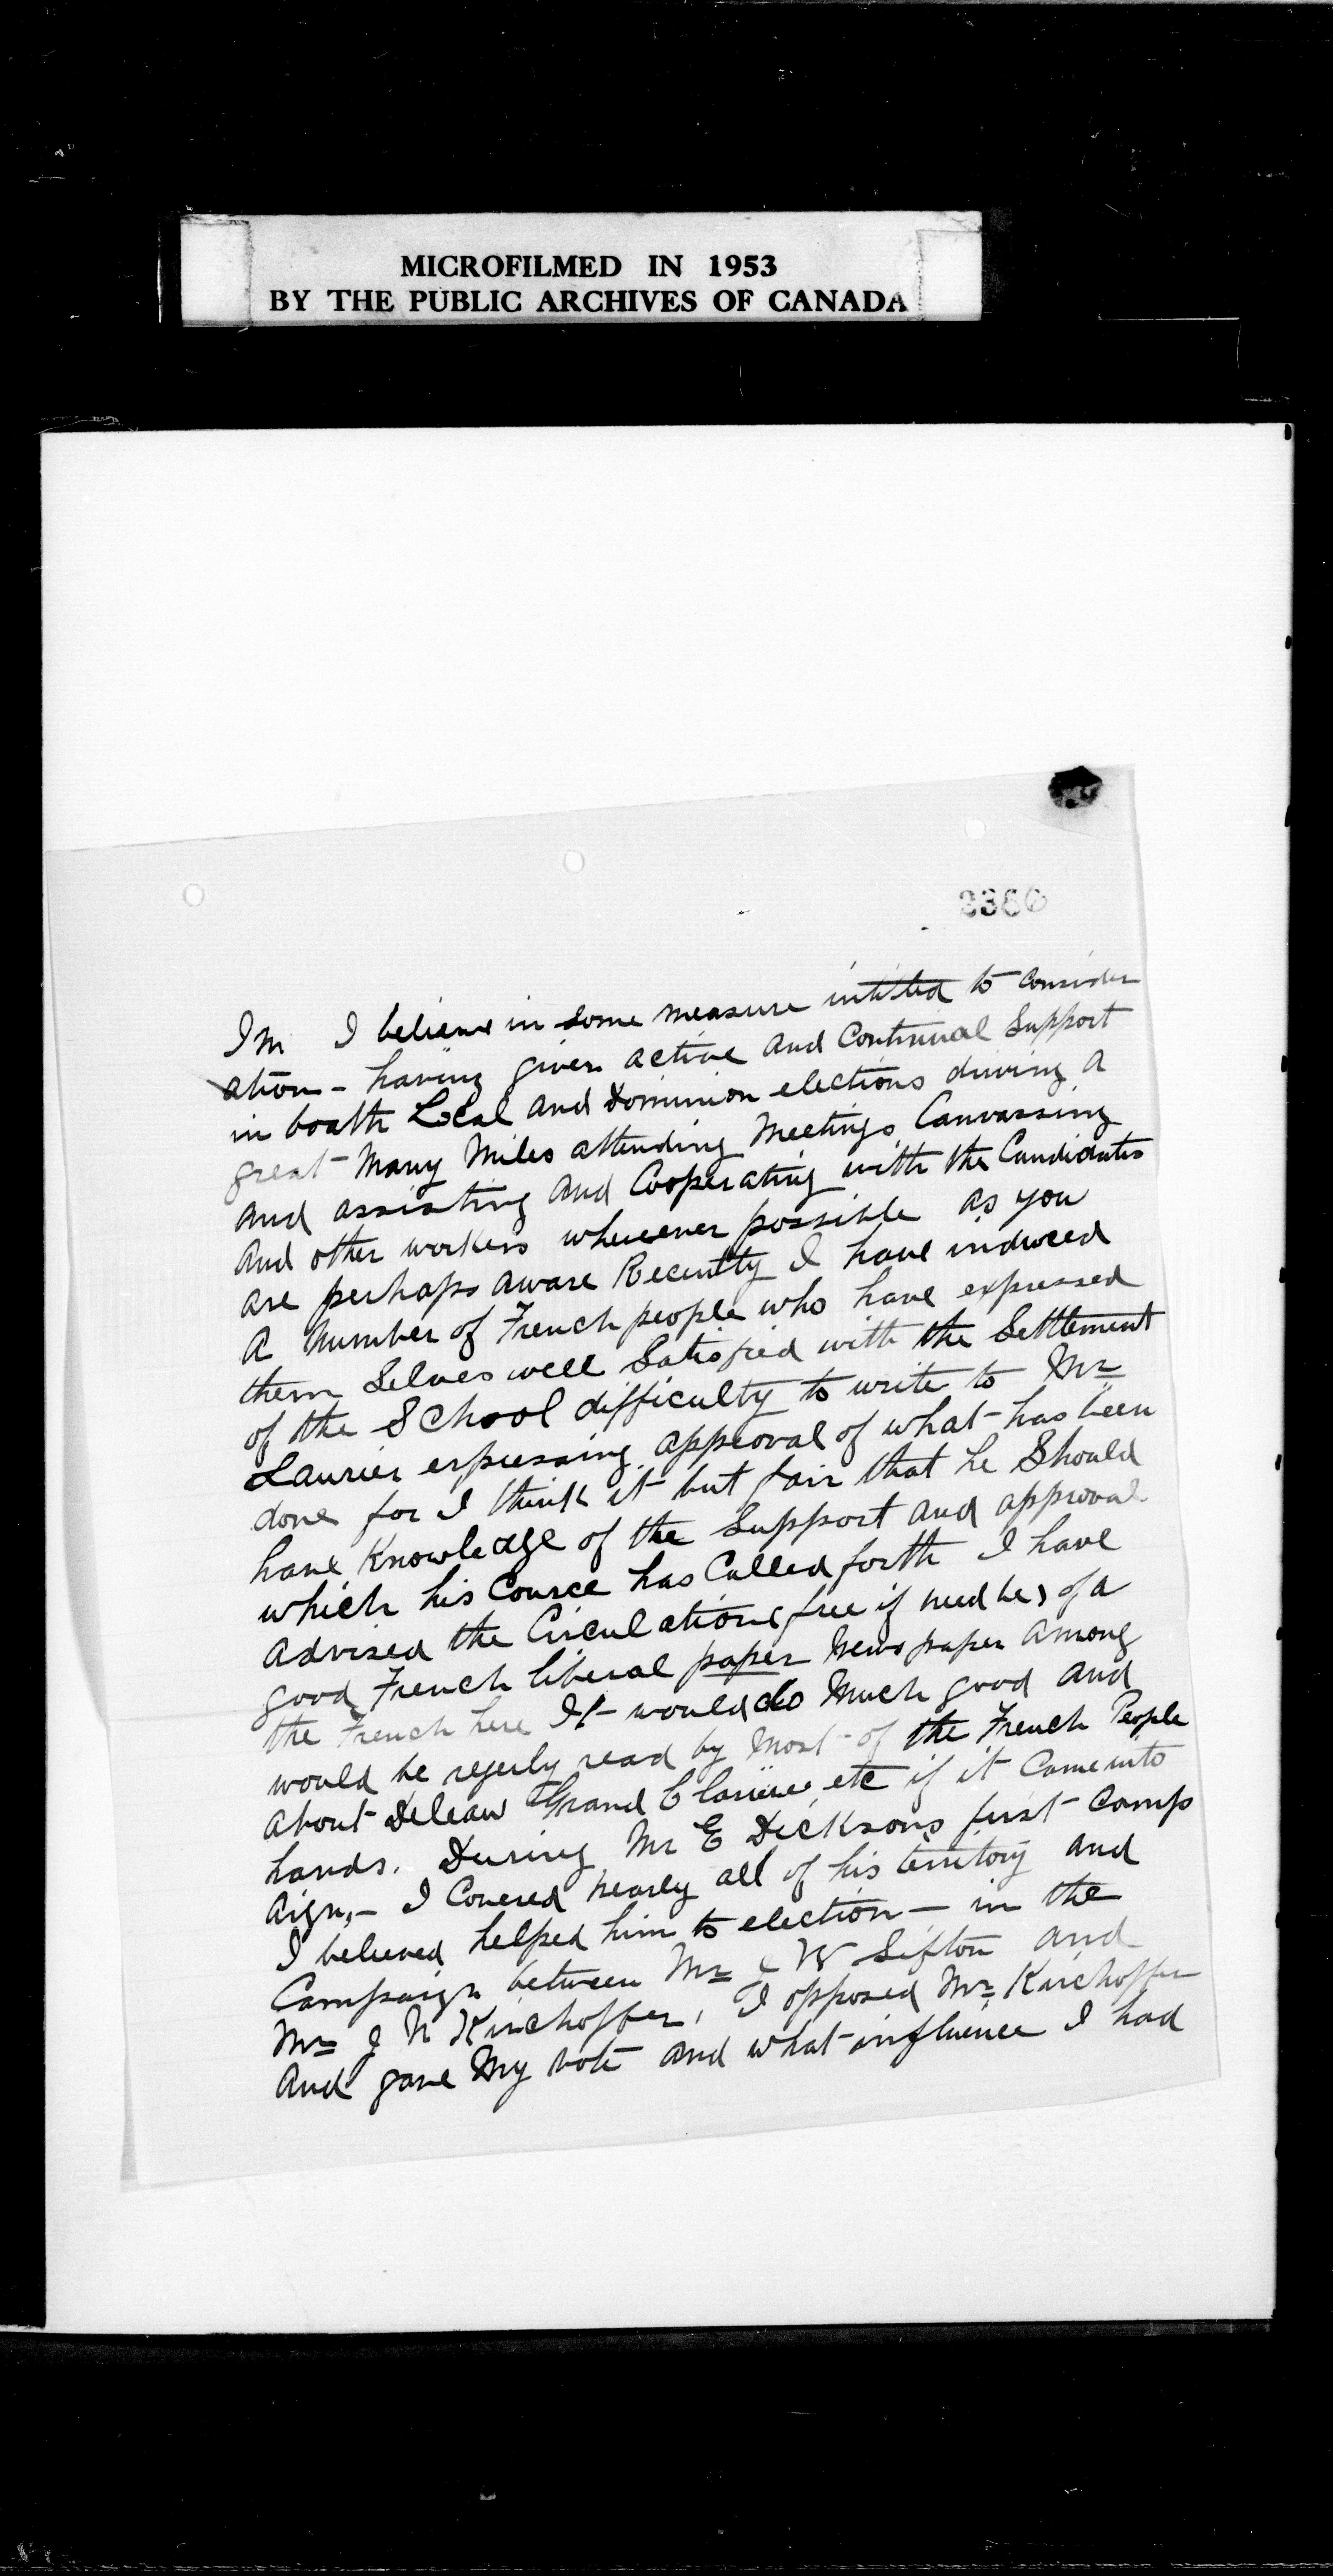 MICROFILMED IN 1953
BY THE PUBLIC ARCHIVES OF CANADA
3366
Im I believe in some measure intitled to consider
ation - having given active and Continual Support
in boath Local and Dominion elections driving a
great Many Miles attending Meetings Canvassing
and assisting and Cooperating with the Candidates
and other workers wherever possible as you
are perhaps aware Recently I have induced
a Number of French people who have expressed
them Selves well Satisfied with the Settlement
of the School difficulty to write to Mr
Laurier expressing approval of what has been
done for I think it but fair that he Should
have Knowledge of the Support and approval
which his Cource has Called forth I have
advised the Circulation (free if need be) of a
good French liberal paper Newspaper among
the French here It would do Much good and
would be regerly read by Most of the French People
about Deleau Grand Clariere etc if it Came into
hands. During Mr E Dicksons first Camp
aign, - I Covered nearly all of his territory and
I believed helped him to election - in the
Campaign between Mr W Sifton and
Mr J N Kirchoffer, I opposed Mr Kirchoffer
And gave My vote and what influence I had